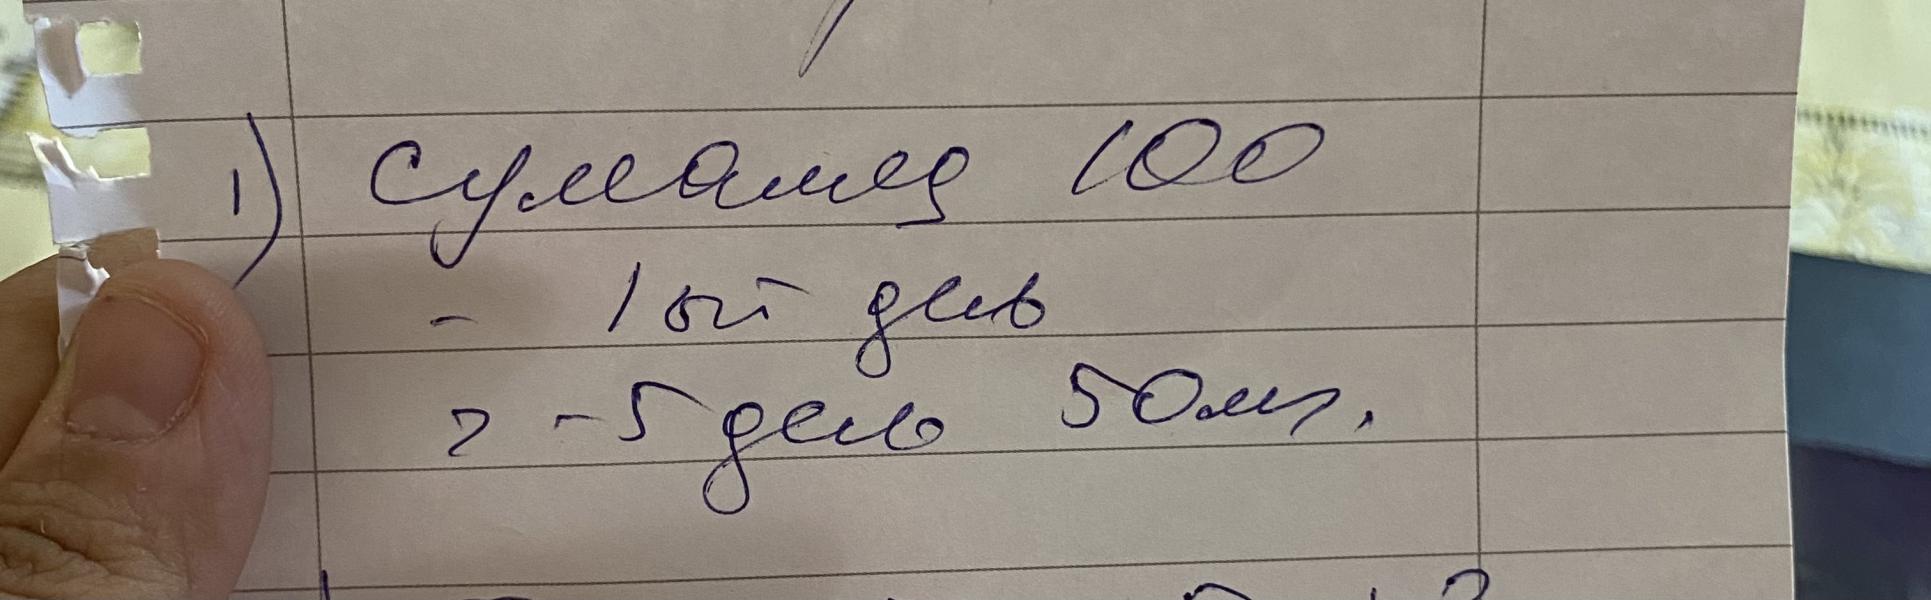 1) Сумамед 100
- 1 ый день
2 - 5 день 50мг.